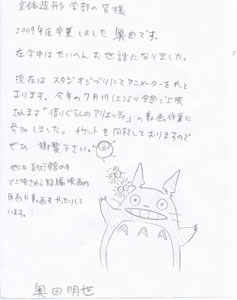 立体造形学部の皆様
2009年度卒業しました奥田です。
在学中はたいへんお世話になりました。
現在はスタジオジブリにてアニメーターをやって
おります。今年の7月17(土)より全国で上映
されます「借りぐらしのアリエッティ」の動画作業に
参加しました。チケットを同封しておりますので
ぜひ御覧下さい。
他にも美術館の中
で上映される短編映画の
原画や動画をやったりして
います。
奥田明世